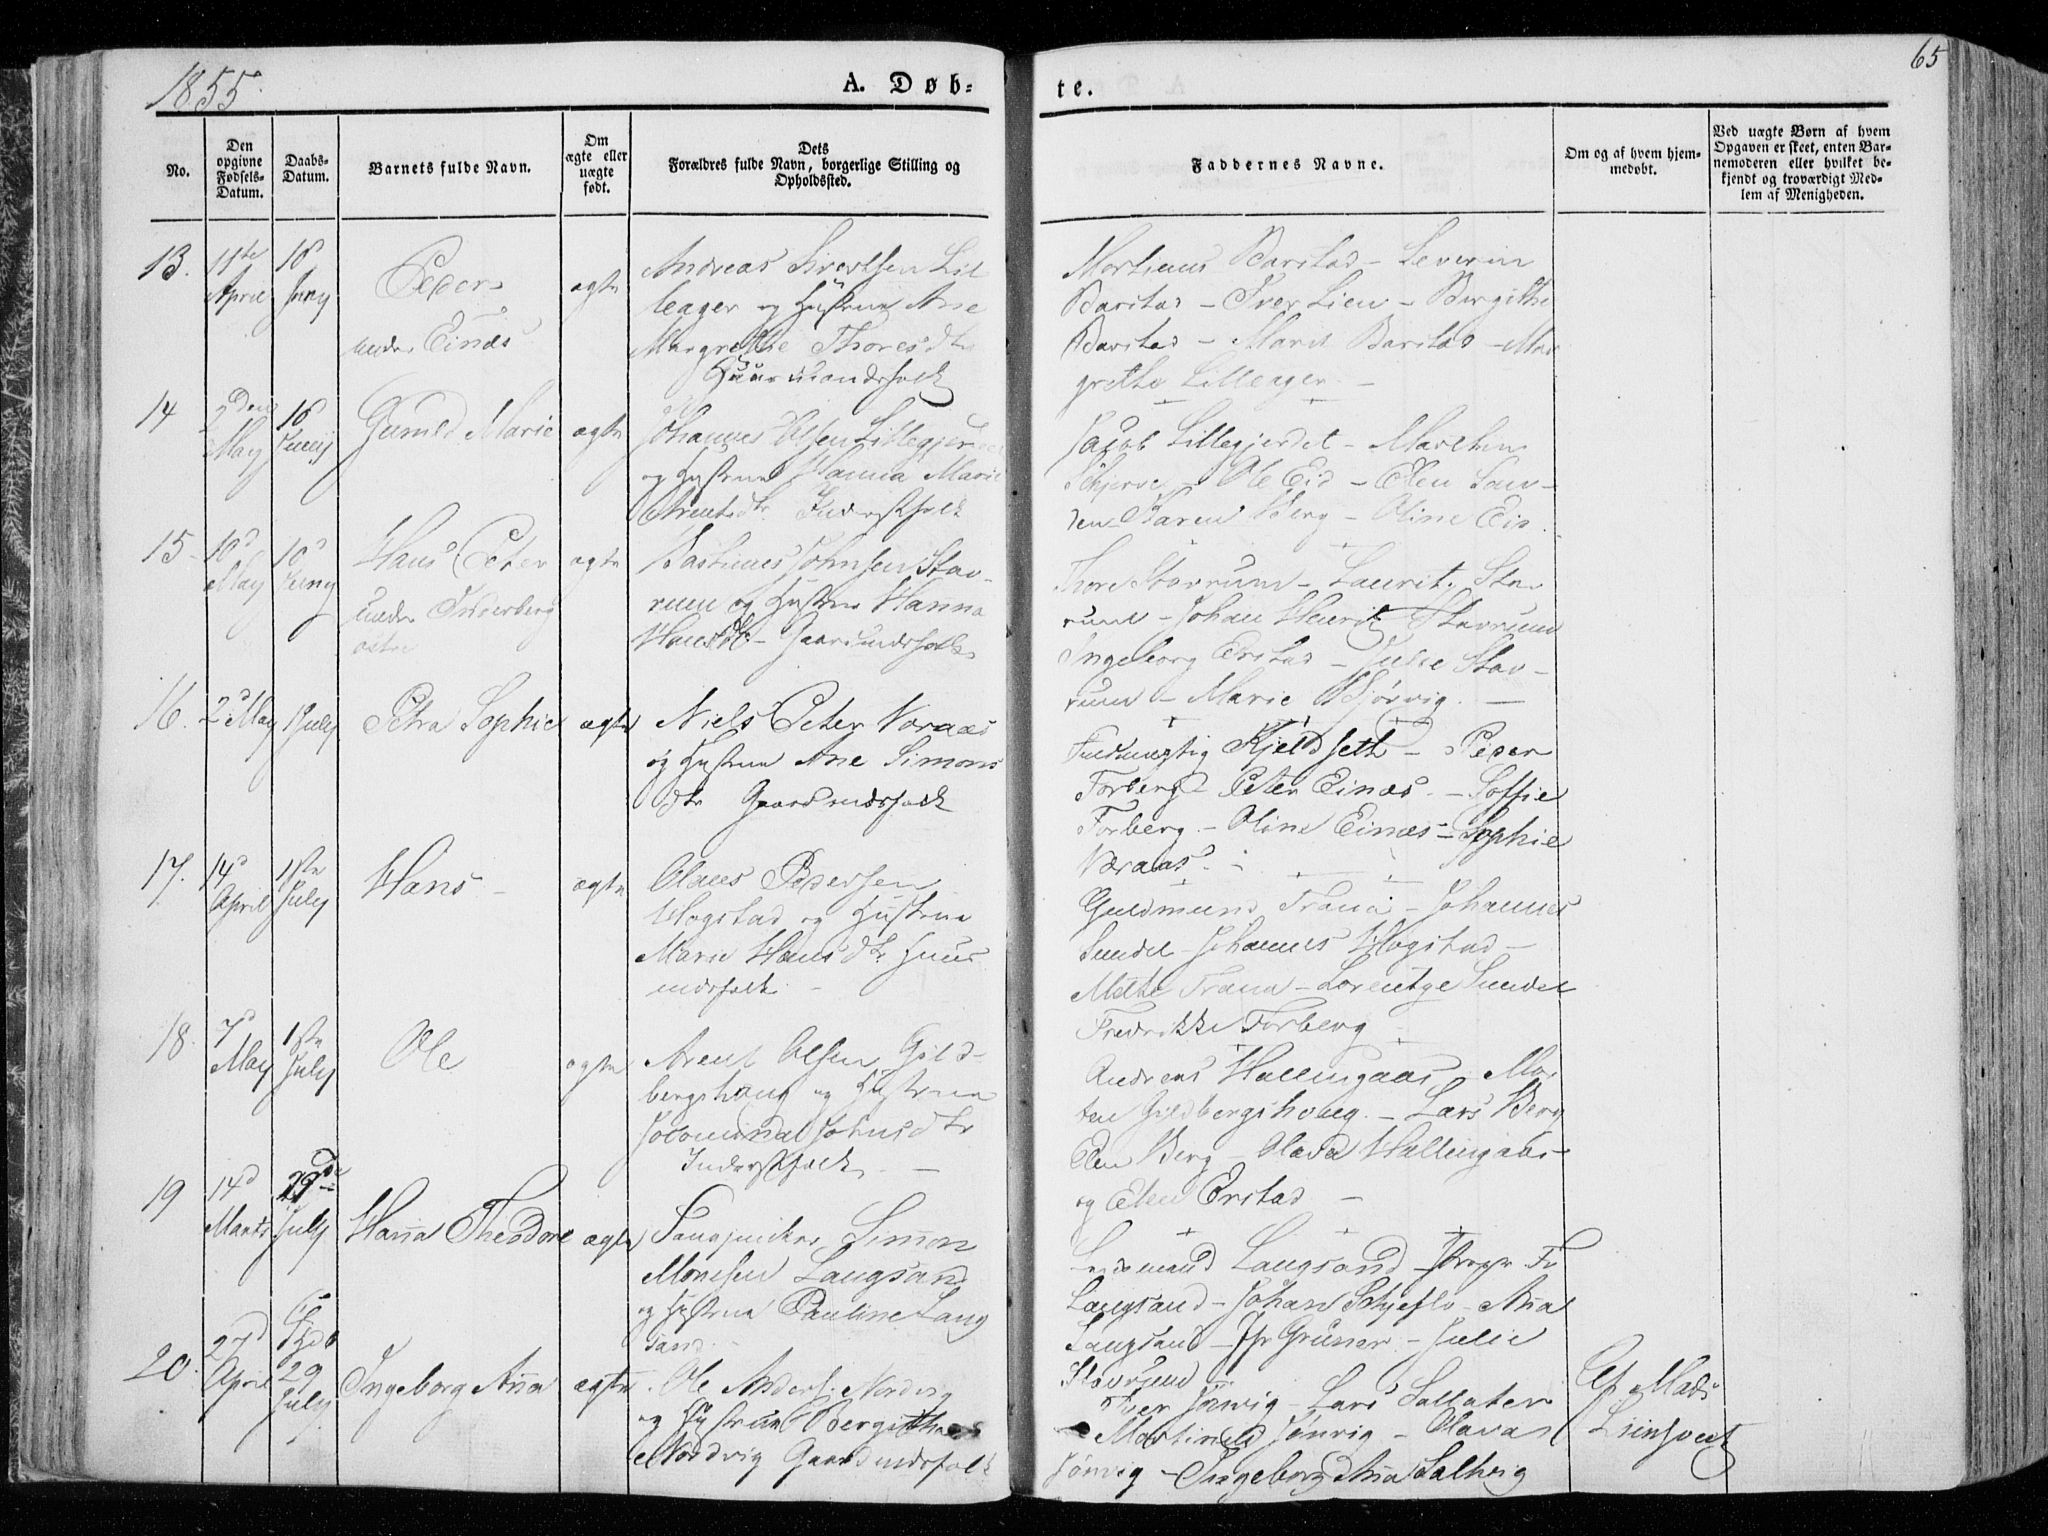 1855.
A. Døb=
te.
65
No.
Den opgivne Fødsels-Datum.
Daabs-Datum.
Barnets fulde Navn.
Om ægte eller uægte født.
Dets Forældres fulde Navn, borgerlige Stilling og Opholdssted.
Faddernes Navne.
Om og af hvem hjemmedøbt.
Ved uægte Børn af hvem Opgaven er skeet, enten Barnemoderen eller hvilket bekjendt og troværdigt Medlem af Menigheden.
13.
11te April
10 Juny
Peder
under Einæs
ægte
Andreas Sivertsen Lil
leager og Hustrue Ane
Margrethe Thoresdtr
Huusmandsfolk
Martinus Barstad – Severin
Barstad – Iver Lien – Bergithe
Barstad – Marit Barstad – Mar
grethe Lilleager. –
14
2den May
10 Juny
Gunild Marie
ægte
Johannes Olsen Lillegjerdet
og Hustrue Hanna Marie
Arentsdtr. Inderstfolk
Jacob Lillegjerdet –
Schjerve – Ole Eid – Elen San-
den Karen Berg – Oline Eid.
15
10d May
10d Juny
Hans Peter
under Inderberg
østre
ægte
Bastines Johnsen Stav-
rum og Hustrue Hanna
Hansdtr – Gaardmandsfolk
Thore Stavrum – Laurits Stav
rum – Johan Henrik Stavrum
Ingeborg Erstad – Julie Stav-
rum – Marie Bjørvig. –
16.
2d May
1 July
Petra Sophie
ægte
Niels Peter Noraas
og Hustrue Ane Simons
dtr Gaardmandsfolk
Kjeldseth – Peder
Forberg Peter Einæs. – Soffie
Forberg. – Oline Einæs – Sophie
Noraas. –
17.
14d April
1ste July
Hans –
ægte
Olaus Pedersen
Hogstad og Hustrue
Marie Hansdtr Huus
mdsfolk. –
Guldmund Trana – Johannes
Sundel – Johannes Hogstad –
Mette Trana – Lorentze Sundel
Fredrikke Forberg
18.
7d May
1ste July
Ole
ægte
Arent Olsen Gild-
bergshaug og Hustrue
Johnsdtr
Inderstfolk –
Andreas Hallingaas – Mor
ten Gildbergshoug. – Lars Berg
Elen Berg – Olava Hallingaas –
og Elen Erstad –
19
14d Marts
29de July
Hanna Theodore
ægte
Simon
Monssen Langsand
og Hustrue Pauline Lang
sand. –
Langsand
Langsand – Johan Schjeflo – Ana
Langsand – Jfr Gruner – Julie
Stavrum
20.
27d April
29 July
Ingeborg Anna
ægte
Ole Anders. Nordvig
og Hustrue Bergitha
Nordvig Gaardmdsfolk
Iver Jønvig – Lars Salthe
Martines Jønvig – Olava
Jønvig – Ingeborg Ana Saltvig
Af Mads